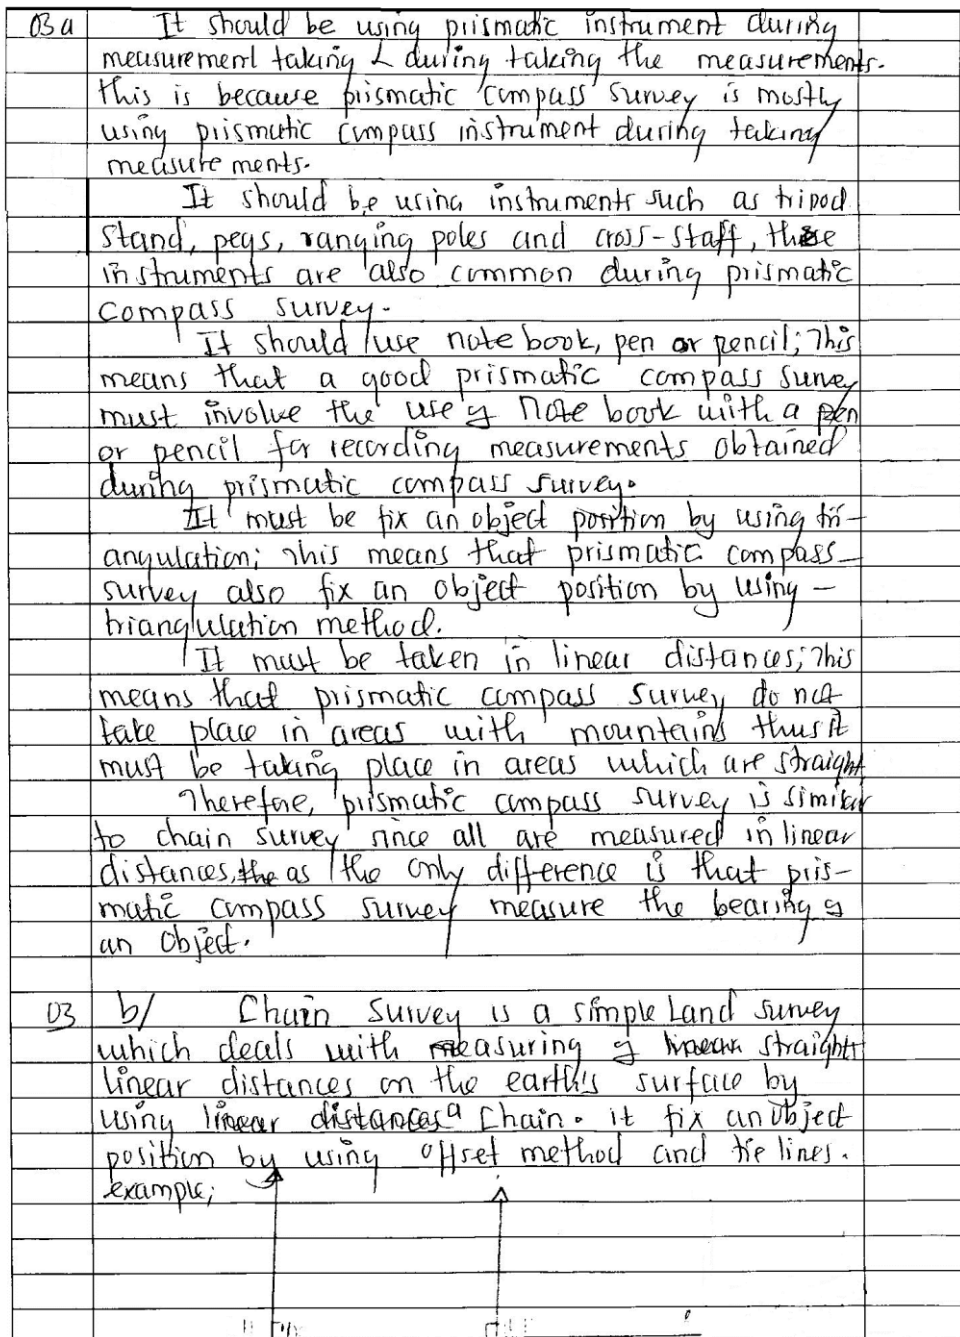 03 a It should be using prismatic instrument during
measurement taking & during taking the measurements.
this is because prismatic compass survey is mostly
using prismatic compass instrument during taking
measurements.
It should be using instruments such as tripod
stand, pegs, ranging poles and cross-staff, these
instruments are also common during prismatic
compass survey.
It should use note book, pen or pencil; This
means that a good prismatic compass survey
must involve the use of note book with a pen
or pencil for recording measurements obtained
during prismatic compass survey.
It must be fix an object position by using tri-
angulation; This means that prismatic compass
survey also fix an object position by using -
triangulation method.
It must be taken in linear distances; This
means that prismatic compass survey do not
take place in areas with mountains thus it
must be taking place in areas which are straight
Therefore, prismatic compass survey is similar
to chain survey since all are measured in linear
distances, the as the only difference is that pris-
matic compass survey measure the bearing of
an object.
03 b/ Chain Survey is a simple Land survey
which deals with measuring of linear straight
linear distances on the earth's surface by
using linear distances a Chain. it fix an object
position by using offset method and tie lines.
example;